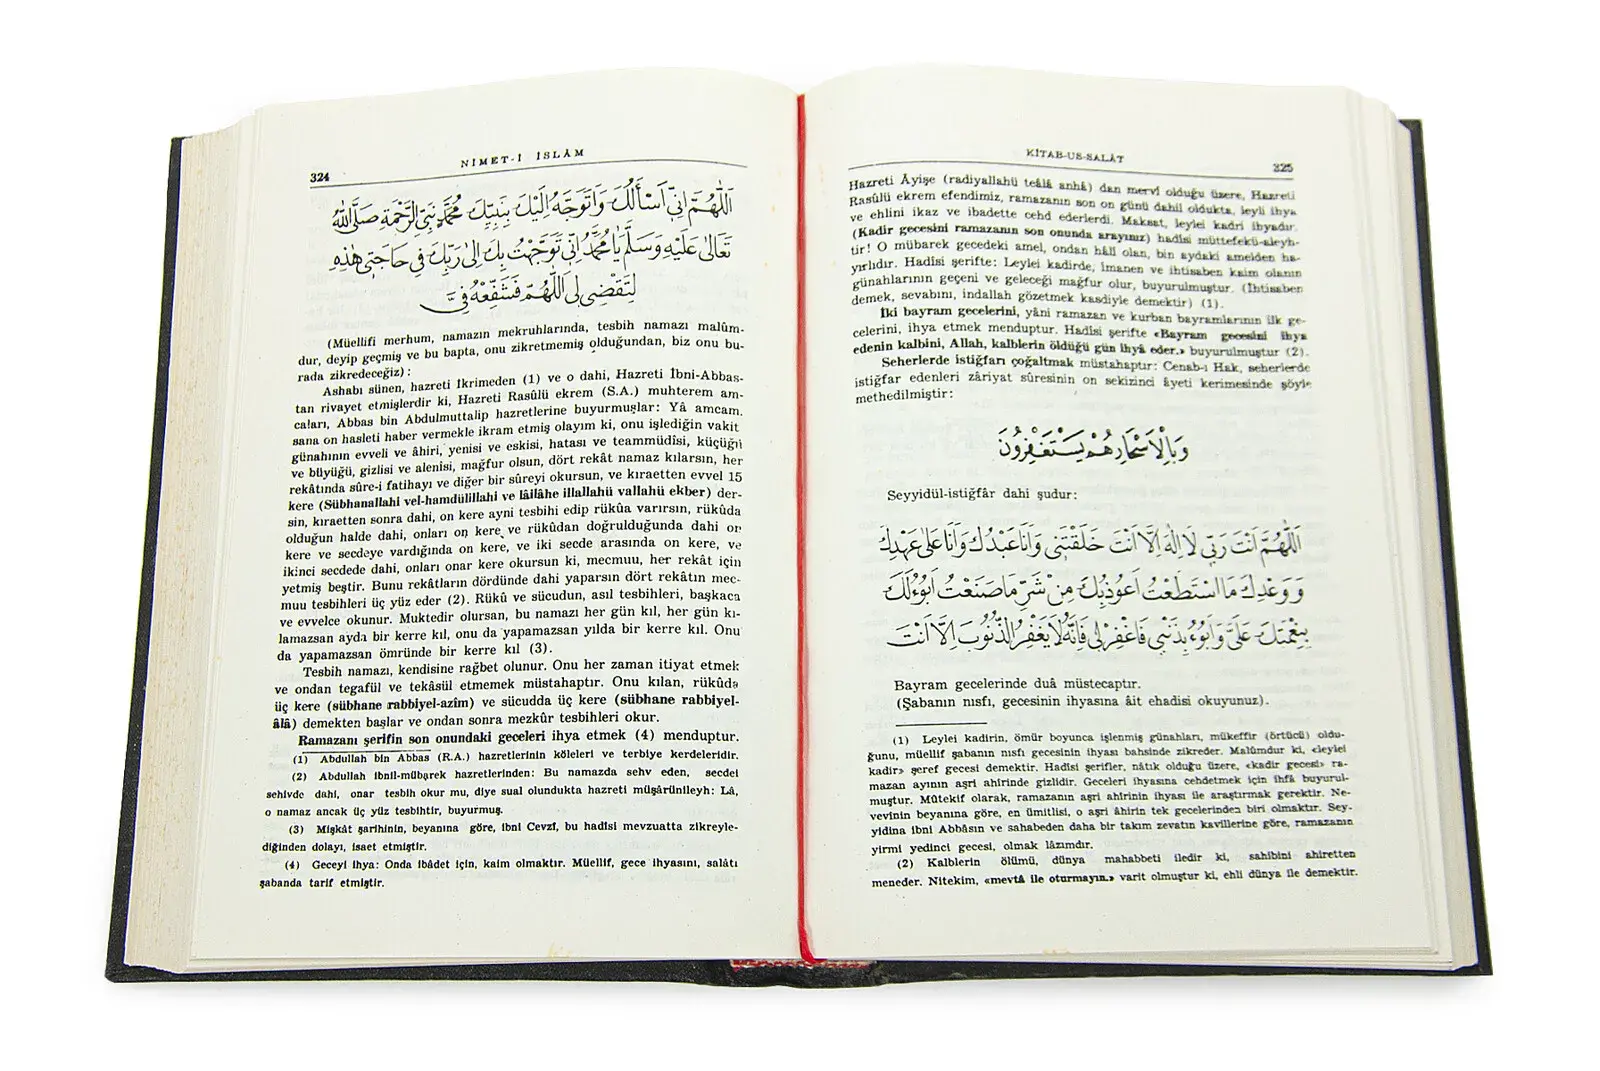 324
NİMET-İ İSLÂM
اَللّٰهُمَّ اِنِّى اَسْأَلُكَ وَاَتَوَجَّهُ اِلَيْكَ بِنَبِيِّكَ مُحَمَّدٍ نَبِىِّ الرَّحْمَةِ صَلَّى اللّٰهُ
تَعَالٰى عَلَيْهِ وَسَلَّمَ يَا مُحَمَّدُ اِنِّى تَوَجَّهْتُ بِكَ اِلٰى رَبِّكَ فِى حَاجَتِى هٰذِهِ
لِتُقْضٰى لِى اَللّٰهُمَّ فَشَفِّعْهُ فِىَّ
(Müellifi merhum, namazın mekruhlarında, tesbih namazı malûm-
dur, deyip geçmiş ve bu bapta, onu zikretmemiş olduğundan, biz onu bu-
rada zikredeceğiz) :
Ashabı sünen, hazreti İkrimeden (1) ve o dahi, Hazreti İbni-Abbas-
tan rivayet etmişlerdir ki, Hazreti Rasûlü ekrem (S.A.) muhterem am-
caları, Abbas bin Abdulmuttalip hazretlerine buyurmuşlar: Yâ amcam.
sana on hasleti haber vermekle ikram etmiş olayım ki, onu işlediğin vakit
günahının evveli ve âhiri, yenisi ve eskisi, hatası ve teammüdîsi, küçüğü
ve büyüğü, gizlisi ve alenisi, mağfur olsun, dört rekât namaz kılarsın, her
rekâtında sûre-i fatihayı ve diğer bir sûreyi okursun, ve kıraetten evvel 15
kere (Sübhanallahi vel-hamdülillahi ve lâilâhe illallahü vallahü ekber) der-
sin, kıraetten sonra dahi, on kere ayni tesbihi edip rükûa varırsın, rükûda
olduğun halde dahi, onları on kere ve rükûdan doğrulduğunda dahi on
kere ve secdeye vardığında on kere, ve iki secde arasında on kere, ve
ikinci secdede dahi, onları onar kere okursun ki, mecmuu, her rekât için
yetmiş beştir. Bunu rekâtların dördünde dahi yaparsın dört rekâtın mec-
muu tesbihleri üç yüz eder (2). Rükû ve sücudun, asıl tesbihleri, başkaca
ve evvelce okunur. Muktedir olursan, bu namazı her gün kıl, her gün kı-
lamazsan ayda bir kerre kıl, onu da yapamazsan yılda bir kerre kıl. Onu
da yapamazsan ömründe bir kerre kıl (3).
Tesbih namazı, kendisine rağbet olunur. Onu her zaman itiyat etmek
ve ondan tegafül ve tekâsül etmemek müstahaptır. Onu kılan, rükûda
üç kere (sübhane rabbiyel-azîm) ve sücudda üç kere (sübhane rabbiyel-
âlâ) demekten başlar ve ondan sonra mezkûr tesbihleri okur.
Ramazanı şerifin son onundaki geceleri ihya etmek (4) menduptur.
(1) Abdullah bin Abbas (R.A.) hazretlerinin köleleri ve terbiye kerdeleridir.
(2) Abdullah ibnil-mübarek hazretlerinden: Bu namazda sehv eden, secdei
sehivde dahi, onar tesbih okur mu, diye sual olundukta hazreti müşârünileyh: Lâ,
o namaz ancak üç yüz tesbihtir, buyurmuş.
(3) Mişkât şarihinin, beyanına göre, ibni Cevzî, bu hadîsi mevzuatta zikreyle-
diğinden dolayı, isaet etmiştir.
(4) Geceyi ihya: Onda ibâdet için, kaim olmaktır. Müellif, gece ihyasını, salâtı
şabanda tarif etmiştir.
KİTAB-US-SALÂT
325
Hazreti Âyişe (radiyallahü teâlâ anhâ) dan mervî olduğu üzere, Hazreti
Rasûlü ekrem efendimiz, ramazanın son on günü dahil oldukta, leyli ihya
ve ehlini ikaz ve ibadette cehd ederlerdi. Maksat, leylei kadri ihyadır.
(Kadir gecesini ramazanın son onunda arayınız) hadîsi müttefekü-aleyh-
tir! O mübarek gecedeki amel, ondan hâli olan, bin aydaki amelden ha-
yırlıdır. Hadîsi şerifte: Leylei kadirde, imanen ve ihtisaben kaim olanın
günahlarının geçeni ve geleceği mağfur olur, buyurulmuştur. (İhtisaben
demek, sevabını, indallah gözetmek kasdiyle demektir) (1).
İki bayram gecelerini, yâni ramazan ve kurban bayramlarının ilk ge-
celerini, ihya etmek menduptur. Hadîsi şerifte «Bayram gecesini ihya
edenin kalbini, Allah, kalblerin öldüğü gün ihyâ eder.» buyurulmuştur (2).
Seherlerde istiğfarı çoğaltmak müstahaptır: Cenab-ı Hak, seherlerde
istiğfar edenleri zâriyat sûresinin on sekizinci âyeti kerimesinde şöyle
methedilmiştir:
وَبِالْاَسْحَارِ هُمْ يَسْتَغْفِرُونَ
Seyyidül-istiğfâr dahi şudur:
اَللّٰهُمَّ اَنْتَ رَبِّى لَا اِلٰهَ اِلَّا اَنْتَ خَلَقْتَنِى وَاَنَا عَبْدُكَ وَاَنَا عَلٰى عَهْدِكَ
وَوَعْدِكَ مَا اسْتَطَعْتُ اَعُوذُ بِكَ مِنْ شَرِّ مَا صَنَعْتُ اَبُوءُ لَكَ
بِنِعْمَتِكَ عَلَىَّ وَاَبُوءُ بِذَنْبِى فَاغْفِرْ لِى فَاِنَّهُ لَا يَغْفِرُ الذُّنُوبَ اِلَّا اَنْتَ
Bayram gecelerinde duâ müstecaptır.
(Şabanın nısfı, gecesinin ihyasına âit ehadisi okuyunuz).
(1) Leylei kadirin, ömür boyunca işlenmiş günahları, mükeffir (örtücü) oldu-
ğunu, müellif şabanın nısfı gecesinin ihyası bahsinde zikreder. Malûmdur ki, «leylei
kadir» şeref gecesi demektir. Hadîsi şerifler, nâtık olduğu üzere, «kadir gecesi» ra-
mazan ayının aşri ahirinde gizlidir. Geceleri ihyasına cehdetmek için ihfâ buyurul-
muştur. Mûtekif olarak, ramazanın aşri ahirinin ihyası ile araştırmak gerektir. Ne-
vevinin beyanına göre, en ümitlisi, o aşri âhirin tek gecelerinden biri olmaktır. Sey-
yidina ibni Abbâsın ve sahabeden daha bir takım zevatın kavillerine göre, ramazanın
yirmi yedinci gecesi, olmak lâzımdır.
(2) Kalblerin ölümü, dünya mahabbeti iledir ki, sahibini ahiretten
meneder. Nitekim, «mevtâ ile oturmayın.» varit olmuştur ki, ehli dünya ile demektir.